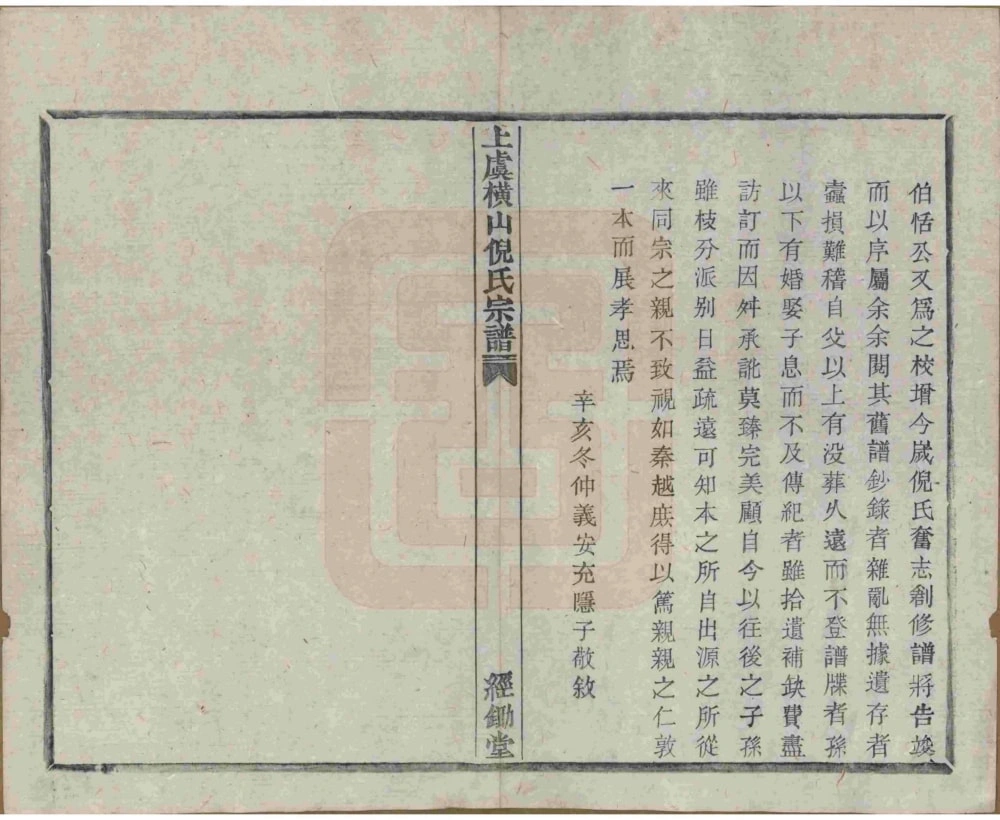 伯恬公又爲之校增今歲倪氏奮志創修譜將告竣
而以序屬余余閱其舊譜鈔錄者雜亂無據遺存者
蠹損難稽自父以上有没葬久遠而不登譜牒者孫
以下有婚娶子息而不及傳紀者雖拾遺補缺費盡
訪訂而因舛承訛莫臻完美顧自今以往後之子孫
雖枝分派别日益疏遠可知本之所自出源之所從
來同宗之親不致視如秦越庶得以篤親親之仁敦
一本而展孝思焉
辛亥冬仲義安充隱子敬敘
上虞橫山倪氏宗譜
經鋤堂